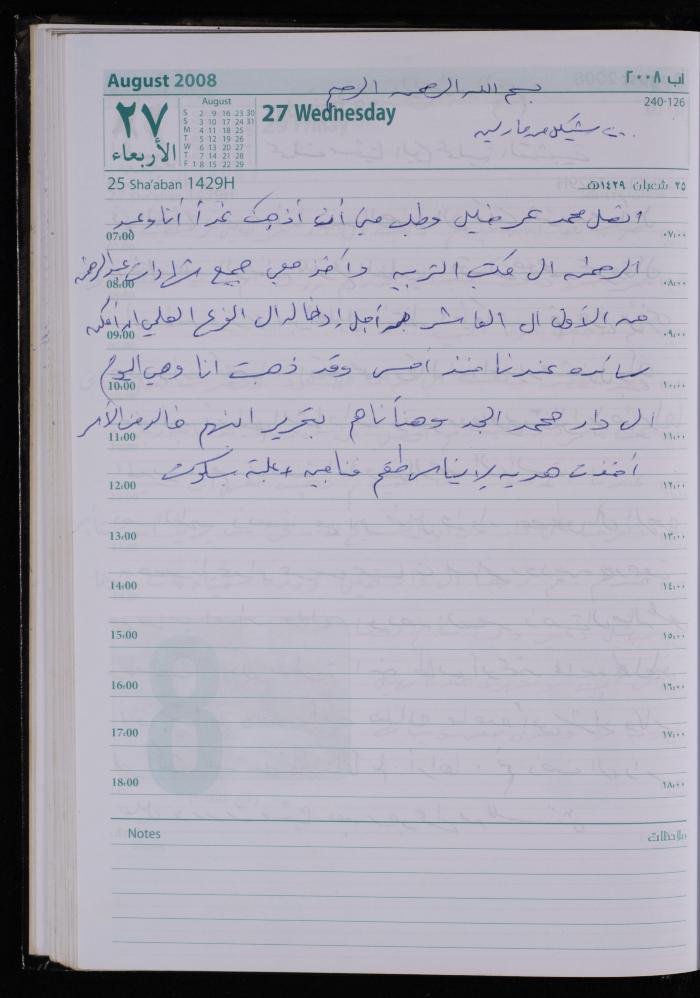 August 2008
اب ٢٠٠٨
بسم الله الرحمن الرحيم
٢٧
الأربعاء
August
S 2 9 16 23 30
S 3 10 17 24 31
M 4 11 18 25
T 5 12 19 26
W 6 13 20 27
T 7 14 21 28
F 1 8 15 22 29
27 Wednesday
240-126
٢٠٠ شيكل من مارلين
25 Sha'aban 1429H
٢٥ شعبان ١٤٢٩هـ
اتصل محمد عمر خليل وطلب مني أن أذهب غداً أنا وعبد
07:00 ٠٧:٠٠
الرحمن الى مكتب التربيه وآخذ معي جميع شهادات عبد الرحمن
08:00 ٠٨:٠٠
من الأول الى العاشر من أجل إدخاله الى الفرع العلمي ان أمكن
09:00 ٠٩:٠٠
سائده عندنا منذ أمس وقد ذهبت انا وهي اليوم
10:00 ١٠:٠٠
الى دار محمد الجد وهنأناهم بتحرير ابنهم خالد من الأسر
11:00 ١١:٠٠
أخذت هديه لايناس طقم فناجين وعلبة بسكوت
12:00 ١٢:٠٠
13:00 ١٣:٠٠
14:00 ١٤:٠٠
15:00 ١٥:٠٠
16:00 ١٦:٠٠
17:00 ١٧:٠٠
18:00 ١٨:٠٠
Notes ملاحظات